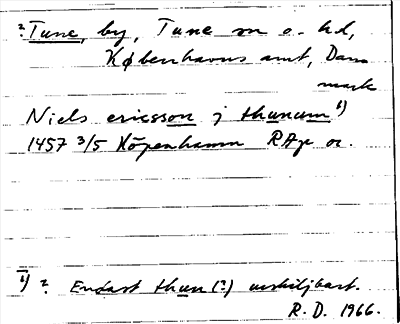 ? Tune, by, Tune sn o. hd,
Københavns amt, Dan
mark
Niels ericsson j thunum 1)
1457 3/5 Köpenhamn RAp or.
1) ? Endast thun (?) urskiljbart.
R. D. 1966.